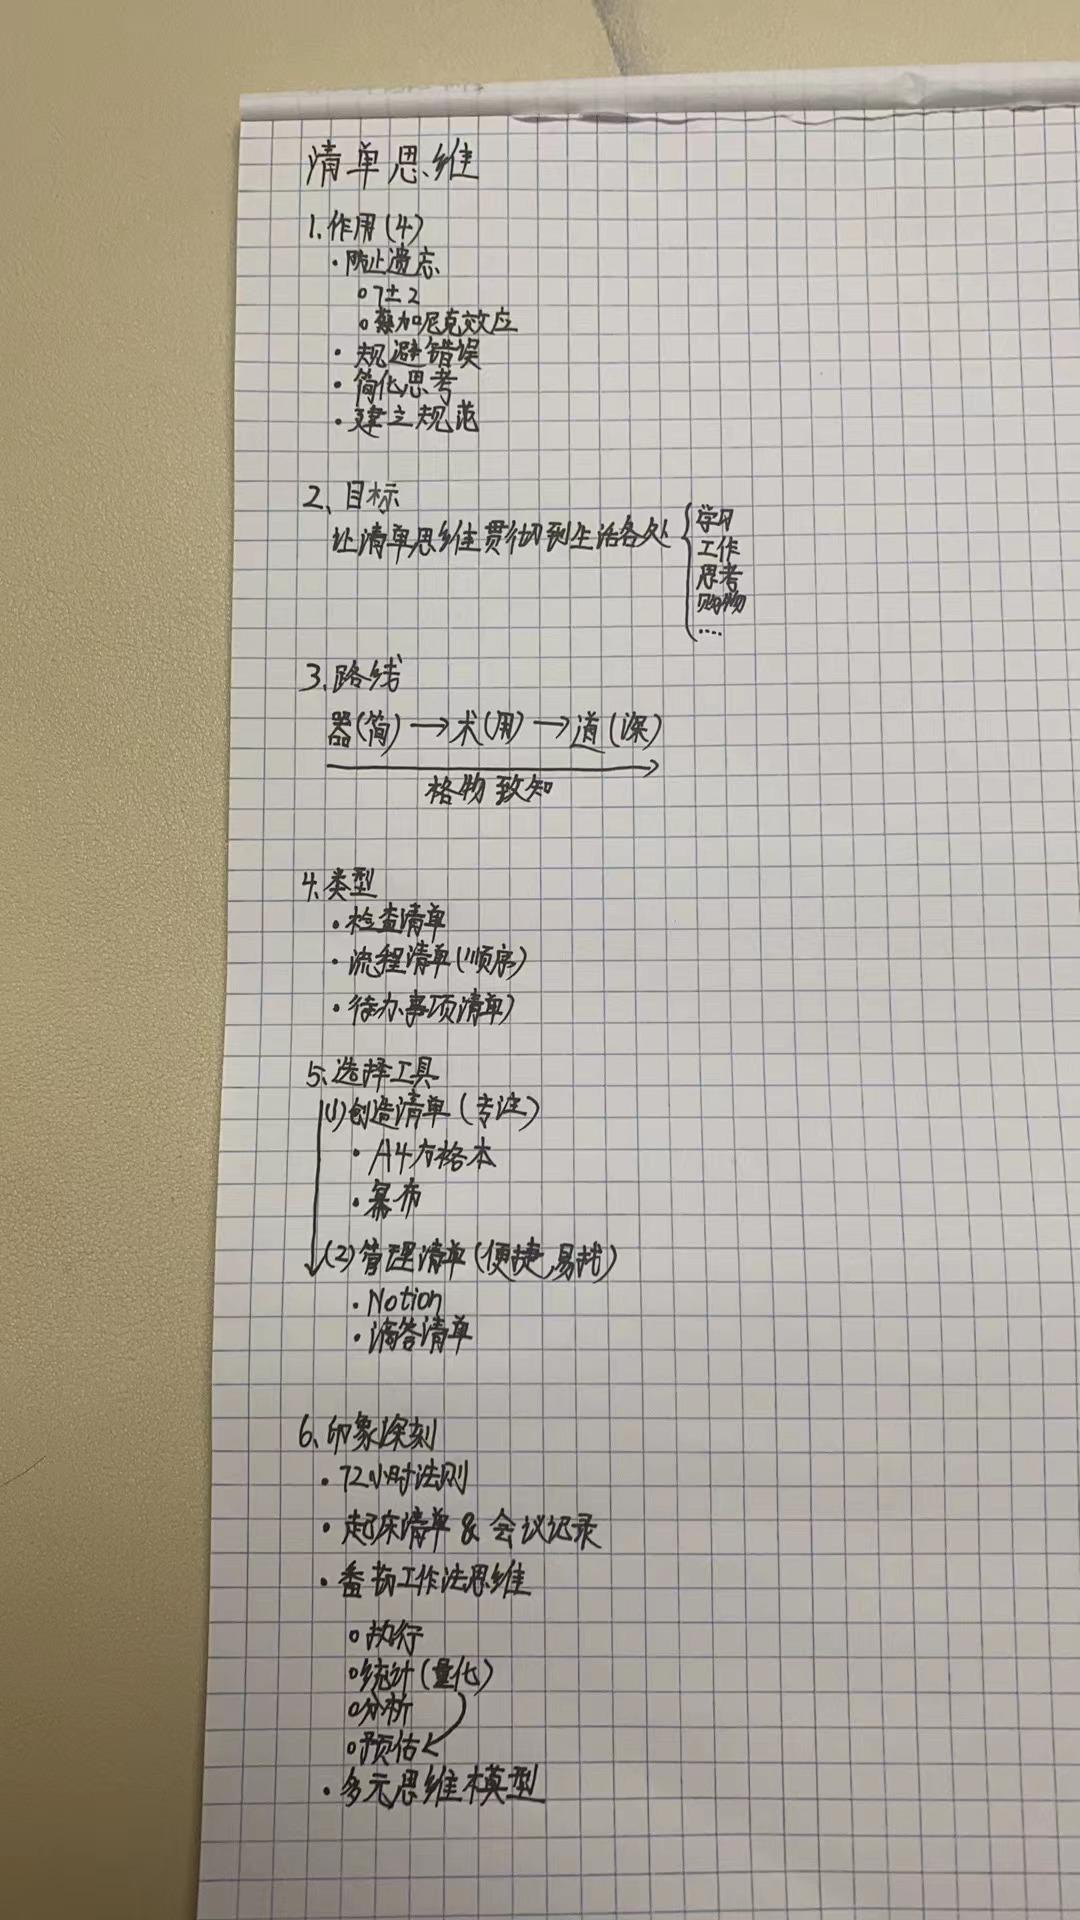 清单思维
1、作用(4)
· 防止遗忘
o 7±2
o 蔡加尼克效应
· 规避错误
· 简化思考
· 建立规范
2、目标
让清单思维贯彻到生活各处
学习
工作
思考
购物
....
3、路线
器(简)→术(用)→道(深)
格物致知
4、类型
· 检查清单
· 流程清单(顺序)
· 待办事项清单)
5、选择工具
(1)创造清单(专注)
· A4方格本
· 幕布
(2)管理清单(便捷,易找)
· Notion
· 滴答清单
6、印象深刻
· 72小时法则
· 起床清单 & 会议记录
· 番茄工作法思维
o 执行
o 统计(量化)
o 分析
o 预估
· 多元思维模型